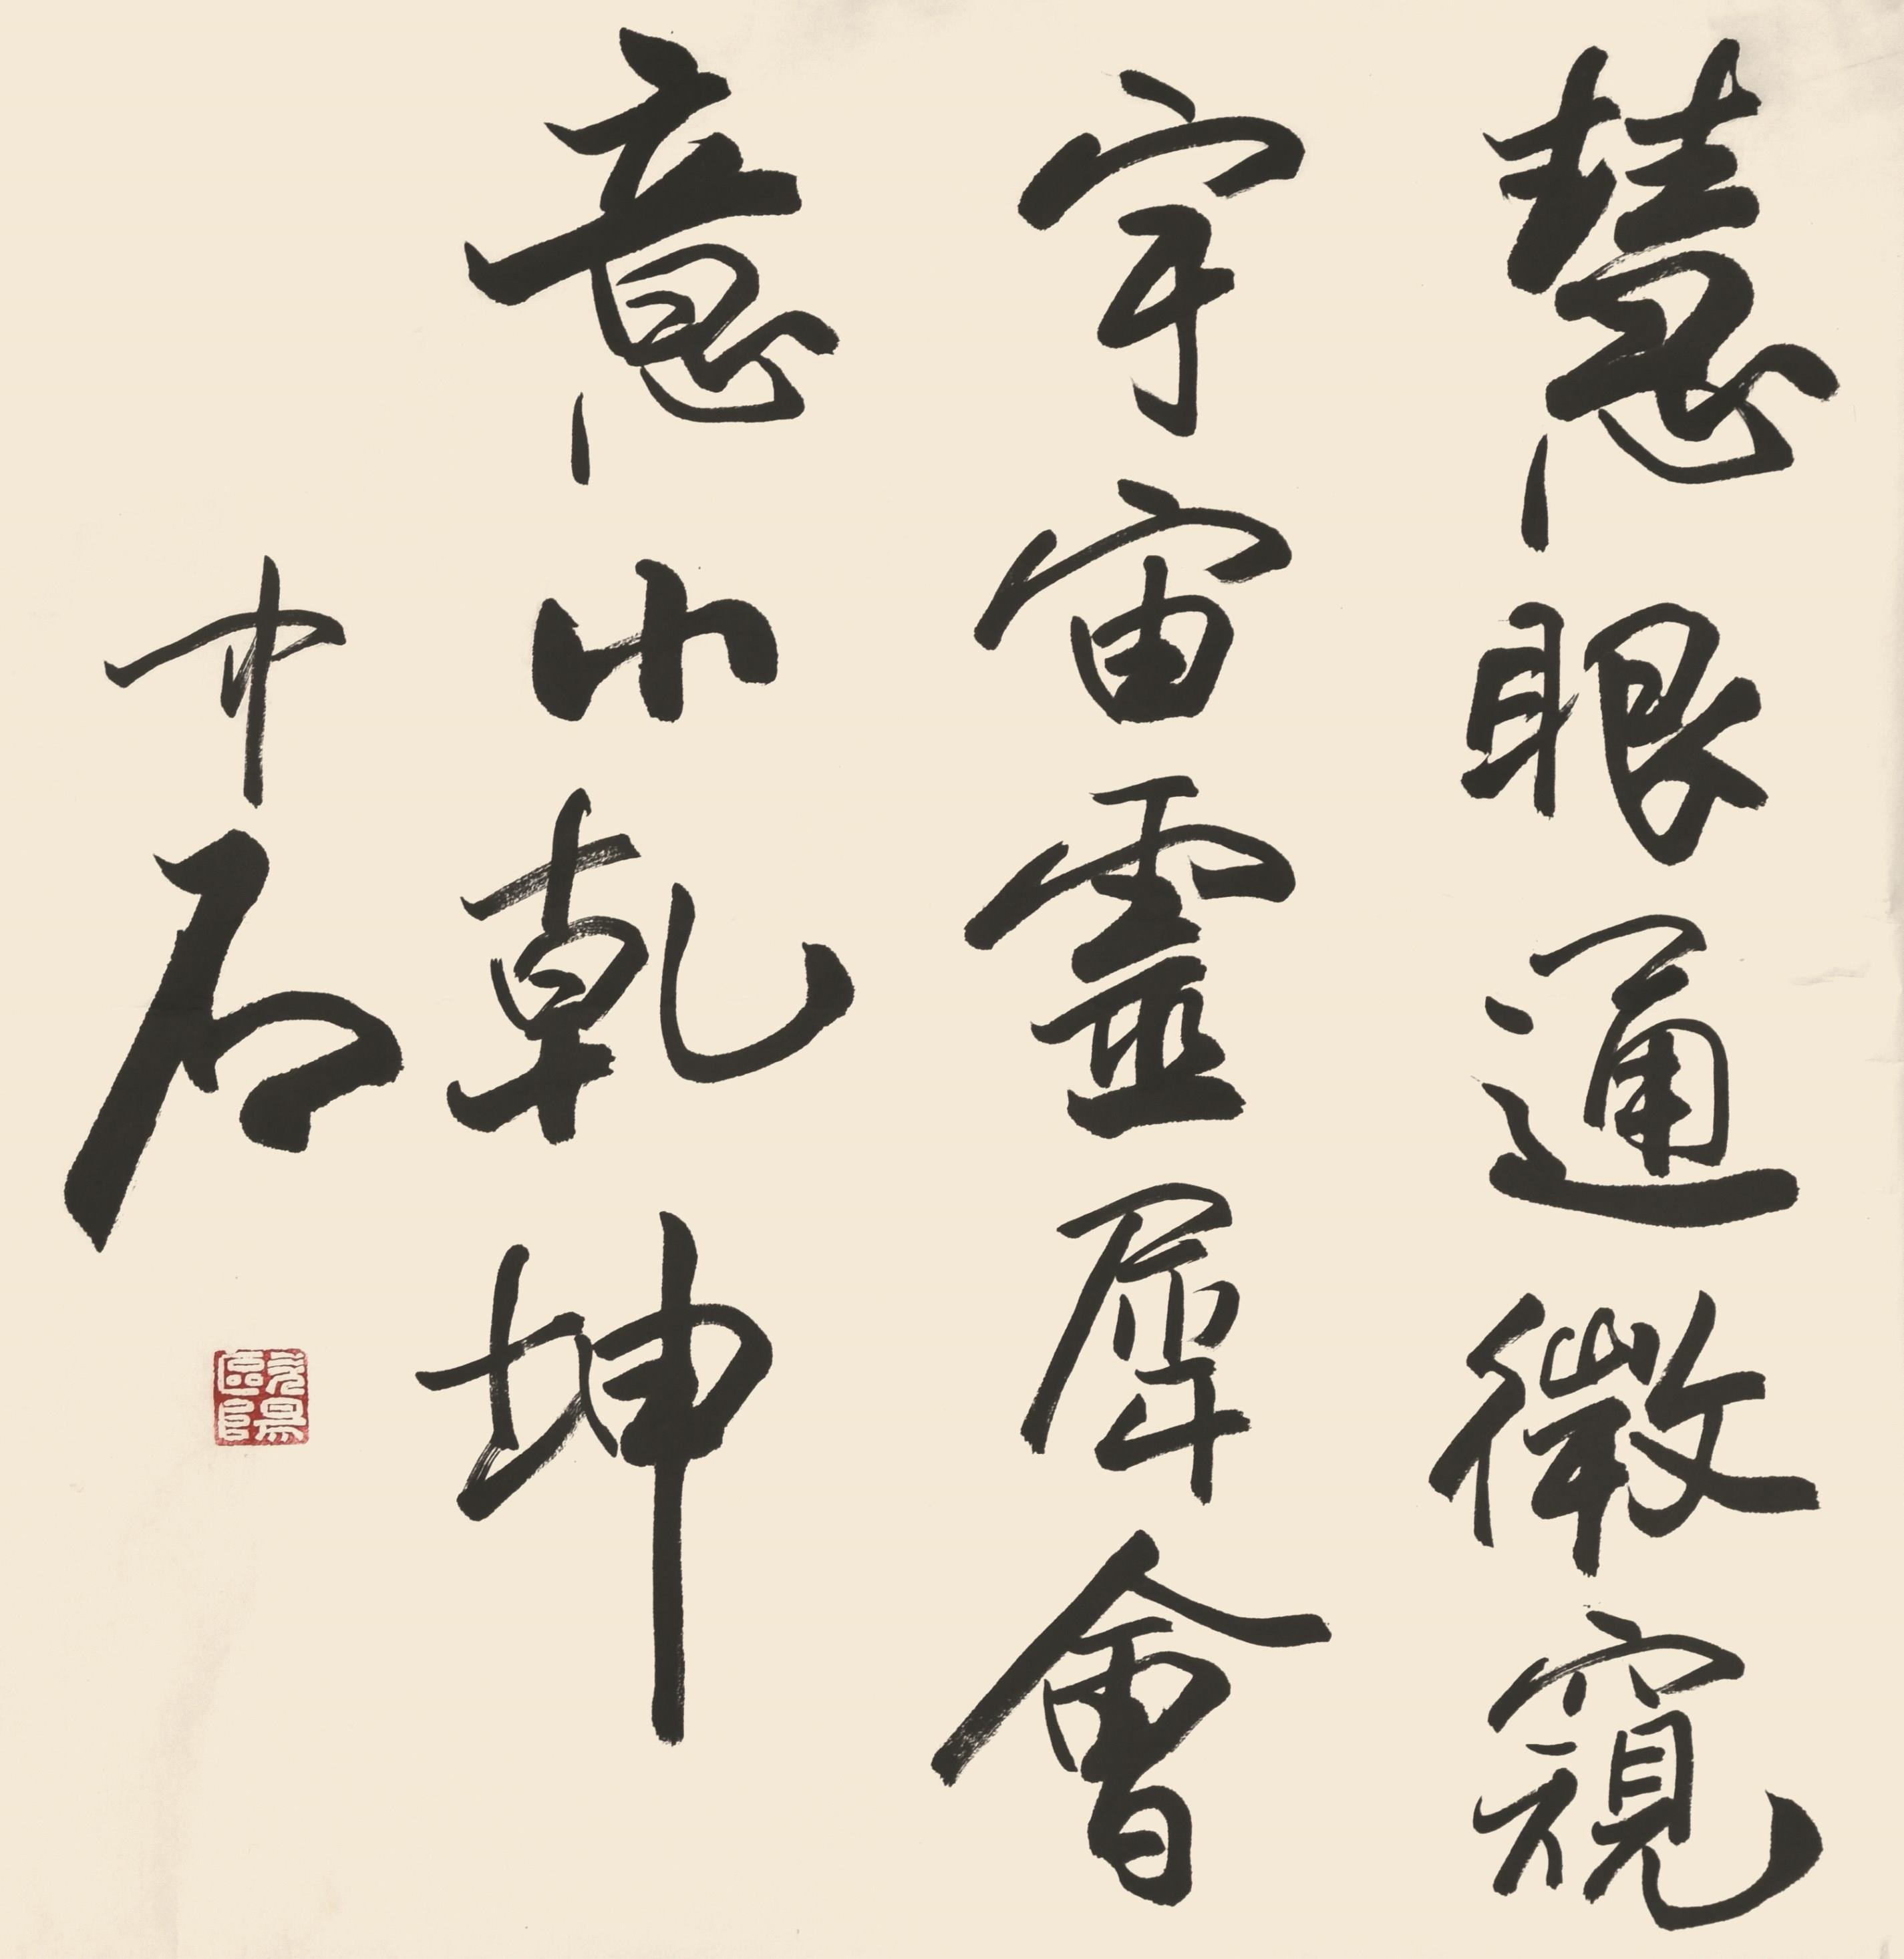 慧眼通微窺
宇宙靈犀會
意小乾坤
中石
歐陽